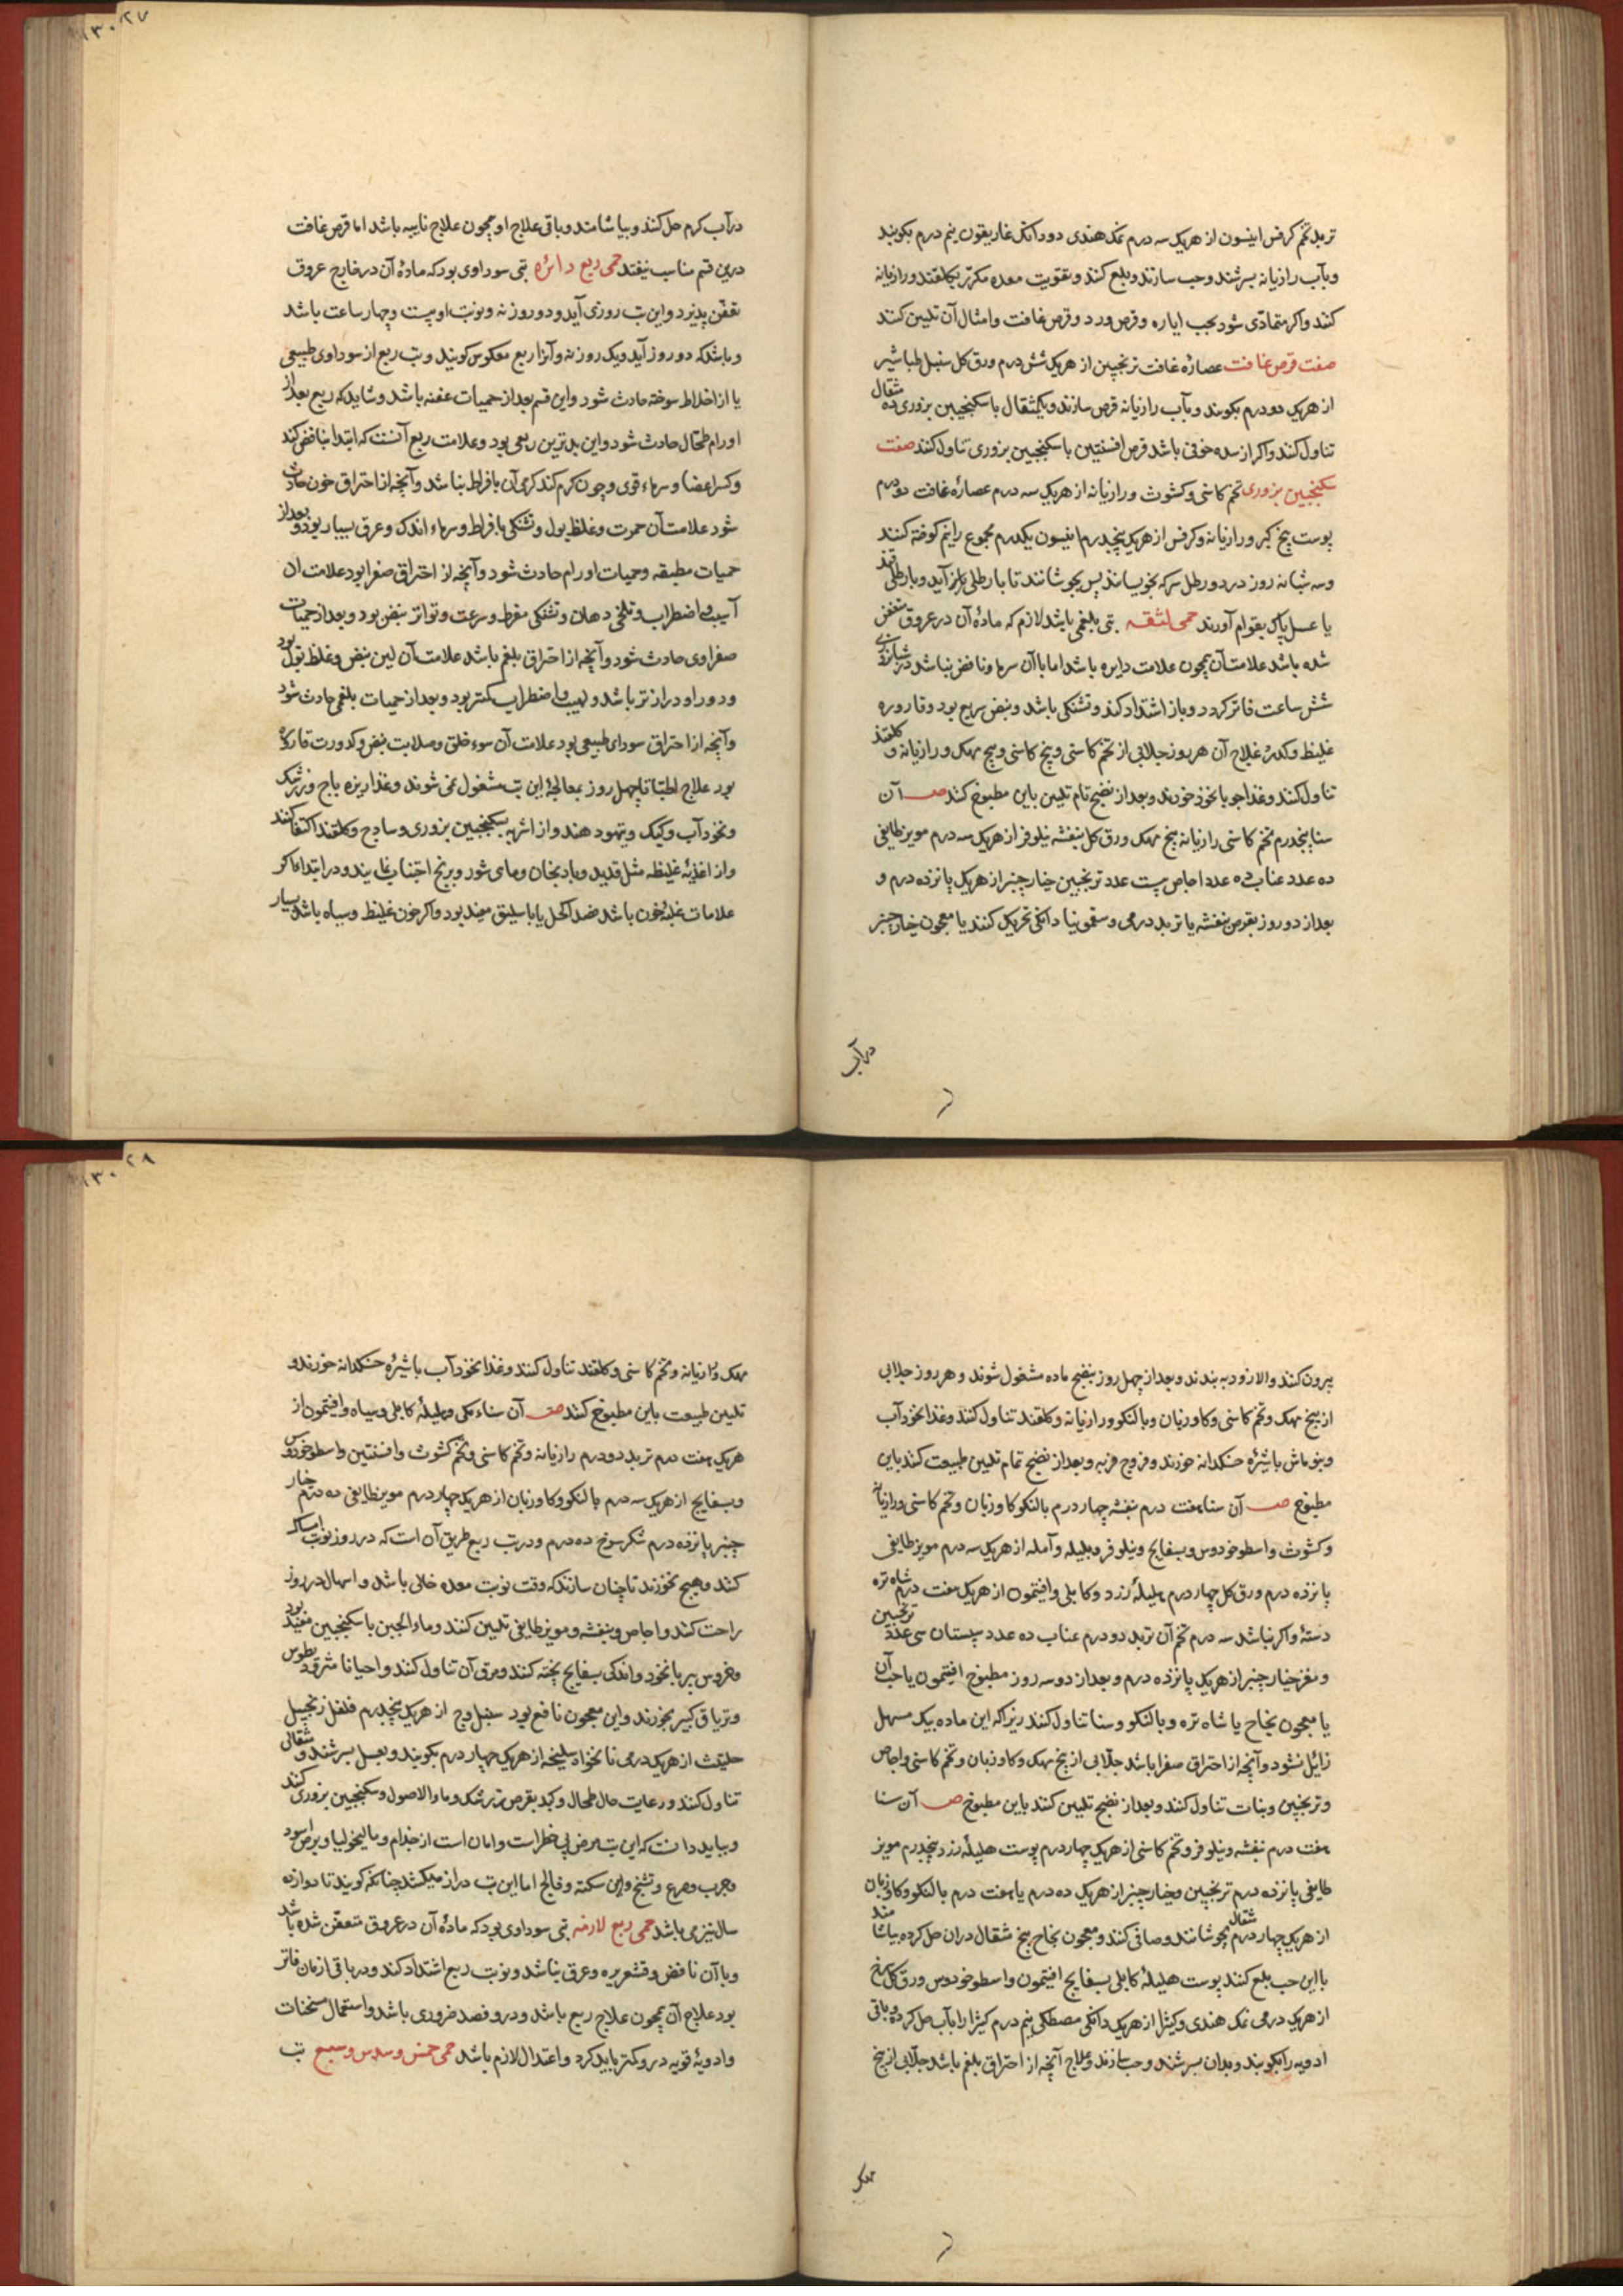 تربد تخم کرفس انیسون از هریک سه درم نمک هندی دو دانک غاریقون نیم درم بکوبند
و بآب رازیانه بسرشند و حب سازند و بلع کنند و بتقویت معده مکرر بکلقند و رازیانه
کنند و اکر متمادی شود بحب ایاره و قرص ورد و قرص غافت و امثال آن تلیین کنند
صفت قرص غافت عصاره غافت ترنجبین از هریک شش درم ورق کل سنبل طباشیر
از هریک دو درم بکوبند و بآب رازیانه قرص سازند و یکمثقال با سکنجبین بزوری ده مثقال
تناول کنند و اکر از سده خوفی باشد قرص افسنتین با سکنجبین بزوری تناول کنند صفت
سکنجبین بزوری تخم کاسنی و کشوث و رازیانه از هریک سه درم عصاره غافت دو درم
پوست بیخ کبر و رازیانه و کرفس از هریک پنجدرم انیسون یکدرم مجموع را نیم کوفته کنند
و سه شبانه روز در دو رطل سرکه بخویسانند پس بجوشانند تا با رطلی باز آید و با رطلی قند
یا عسل پاک بقوام آورند حمی لثقه تبی بلغمی باشد لازم که ماده آن در عروق متعفن
شده باشد علامت آن همچون علامت دایره باشد اما با آن سرما و نافض نباشد در شبانروزی
شش ساعت فاتر کردد و باز اشتداد کند و تشنکی باشد و نبض سریع بود و قاروره
غلیظ و کدر علاج آن هر روز جلابی از تخم کاسنی و بیخ کاسنی و بیخ مهک و رازیانه و کلقند
تناول کنند و غذا جو با نخود خورند و بعد از نضج تام تلیین باین مطبوخ کنند صـ آن
سنا پنجدرم تخم کاسنی رازیانه بیخ مهک ورق کل بنفشه نیلوفر از هریک سه درم مویز طایفی
ده عدد عناب ده عدد اجاص بیست عدد ترنجبین خیارچنبر از هریک پانزده درم و
بعد از دو روز بقرص بنفشه یا تربد درمی و سقمونیا دانکی تحریک کنند یا معجون خیارچنبر
درآب
۱۳۰۲۷
درآب کرم حل کنند و بیاشامند و باقی علاج او همچون علاج نایبه باشد اما قرص غافت
درین قسم مناسب نیفتد حمی ربع دائره تبی سوداوی بود که ماده آن در خارج عروق
تعفن پذیرد و این تب روزی آید و دو روز نه و نوبت او بیست و چهار ساعت باشد
و باشد که دو روز آید و یک روز نه و آنرا ربع معکوس کویند و تب ربع از سوداوی طبیعی
یا از اخلاط سوخته حادث شود و این قسم بعد از حمیات عفنه باشد و شاید که ربع بعد از
اورام طحال حادث شود و این بدترین ربعی بود و علامت ربع آنست که ابتدا بنافض کند
و کسر اعضا و سرماء قوی و چون کرم کند کرمی آن بافراط نباشد و آنچه از احتراق خون حادث
شود علامت آن حمرت و غلظ بول و تشنکی بافراط و سرماء اندک و عرق بسیار بود و بعد از
حمیات مطبقه و حمیات اورام حادث شود و آنچه از احتراق صفرا بود علامت آن
آسیب و اضطراب و تلخی دهان و تشنکی مفرط و سرعت و تواتر نبض بود و بعد از حمیات
صفراوی حادث شود و آنچه از احتراق بلغم باشد علامت آن لین نبض و غلظ بول بود
و دور او درازتر باشد و لهیب و اضطراب کمتر بود و بعد از حمیات بلغمی حادث شود
و آنچه از احتراق سودای طبیعی بود علامت آن سوء خلق و صلابت نبض و کدورت قاروره
بود علاج اطبا تا چهل روز بمعالجه این تب مشغول نمی شوند و غذا زیره باج و زرشک
و نخودآب و کبک و تیهود هند و از اشربه بسکنجبین بزوری و ساذج و کلقند اکتفا کنند
و از اغذیه غلیظه مثل قدید و بادنجان و ماهی شور و برنج اجتناب نمایند و در ابتدا اکر
علامات غلبه خون باشد فصد اکحل یا باسلیق مفید بود و اکر خون غلیظ و سیاه باشد بسیار
بیرون کنند و الا زود به بندند و بعد از چهل روز بنضج ماده مشغول شوند و هر روز جلابی
از بیخ مهک و تخم کاسنی و کاوزبان و بالنکو و رازیانه و کلقند تناول کنند و غذا نخودآب
و بنو ماش باشیره خسکدانه خورند و فروج فربه و بعد از نضج تمام تلیین طبیعت کنند باین
مطبوخ صـ آن سنا هفت درم بنفشه چهار درم بالنکو کاوزبان و تخم کاسنی و رازیانه
و کشوث و اسطوخودوس و بسفایج و نیلوفر و بلیله و آمله از هریک سه درم مویز طایفی
پانزده درم ورق کل چهار درم هلیله زرد و کابلی و افتیمون از هریک هفت درم شاه تره
دسته و اکر نباشد سه درم تخم آن تربد دو درم عناب ده عدد سپستان سی عدد ترنجبین
و مغز خیارچنبر از هریک پانزده درم و بعد از دو سه روز مطبوخ افتیمون یا حب آن
یا معجون نجاح یا شاه تره و بالنکو و سنا تناول کنند زیرا که این ماده بیک مسهل
زائل نشود و آنچه از احتراق صفرا باشد جلابی از بیخ مهک و کاوزبان و تخم کاسنی و اجاص
و ترنجبین و نبات تناول کنند و بعد از نضج تلیین کنند باین مطبوخ صـ آن سنا
هفت درم بنفشه و نیلوفر و تخم کاسنی از هریک چهار درم پوست هلیله زرد پنجدرم مویز
طایفی پانزده درم ترنجبین و خیارچنبر از هریک ده درم یا هفت درم بالنکو و کاوزبان
از هریک چهار درم بجوشانند و صافی کنند و معجون نجاح پنج مثقال دران حل کرده بیاشامند
با این حب بلع کنند پوست هلیله کابلی بسفایج افتیمون و اسطوخودوس ورق کل سرخ
از هریک درمی نمک هندی و کتیرا از هریک دانکی مصطکی نیم درم کتیرا را بآب حل کرده و باقی
ادویه را بکوبند و بدان بسرشند و حب سازند و علاج آنچه از احتراق بلغم باشد جلابی از بیخ
مهک
۱۳۰۲۸
مهک و رازیانه و تخم کاسنی و کلقند تناول کنند و غذا نخودآب باشیره خسکدانه خورند و
تلیین طبیعت باین مطبوخ کنند صـ آن سناء مکی و هلیله کابلی و سیاه و افتیمون از
هریک هفت درم تربد دو درم رازیانه و تخم کاسنی و تخم کشوث و افسنتین و اسطوخودوس
و بسفایج از هریک سه درم بالنکو و کاوزبان از هریک چهار درم مویز طایفی ده درم خیار
چنبر پانزده درم شکر سرخ ده درم و در تب ربع طریق آن است که در روز نوبت امساک
کنند و هیچ نخورند تا چنان سازند که وقت نوبت معده خالی باشد و اسهال در روز
راحت کنند و اجاص و بنفشه و مویز طایفی تلیین کنند و ماء الجبن با سکنجبین مفید بود
و خروس پیر با نخود و اندکی بسفایج پخته کنند و مرق آن تناول کنند و احیانا مثرودیطوس
و تریاق کبیر بخورند و این معجون نافع بود سنبل وج از هریک پنجدرم فلفل زنجبیل
حلتیت از هریک درمی نانخواه سلیخه از هریک چهار درم بکوبند و بعسل بسرشند و مثقالی
تناول کنند و رعایت حال طحال و کبد بقرص زرشک و ماء الاصول و سکنجبین بزوری کنند
و بباید دانست که این تب مرض بی خطراست و امان است از جذام و مالیخولیا و برص اسود
و جرب و صرع و تشنج و این سکته و فالج اما این تب دراز میکشد چنانکه کویند تا دوازده
سال نیز می باشد حمی ربع لازمه تبی سوداوی بود که ماده آن در عروق متعفن شده باشد
و با آن نافض و قشعریره و عرق نباشد و نوبت ربع اشتداد کند و در باقی ازمان فاتر
بود علاج آن همچون علاج ربع باشد و درو فصد ضروری باشد و استعمال مسخنات
و ادویه قویه درو کمتر باید کرد و اعتدال لازم باشد حمی خمس و سدس و سبع تب